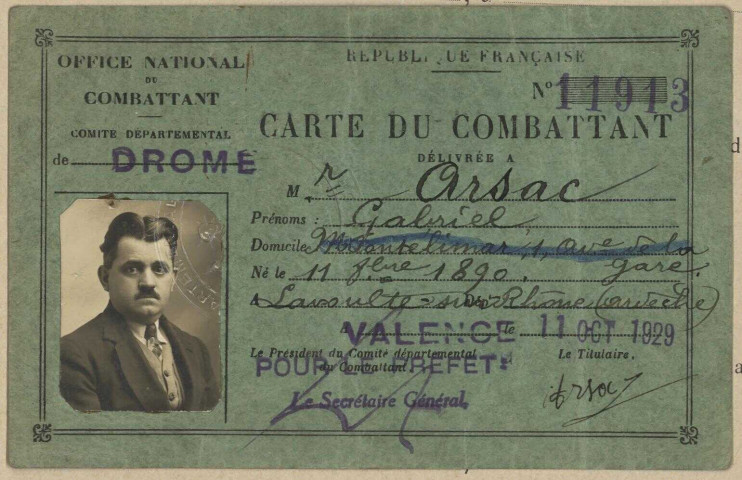 OFFICE NATIONAL
DU
COMBATTANT
COMITÉ DÉPARTEMENTAL
de DROME
REPUBLIQUE FRANÇAISE
No 11913
CARTE DU COMBATTANT
DÉLIVRÉE A
M. r Arsac
Prénoms : Gabriel
Domicile Montélimar, 1, ave de la
gare.
Né le 11 fbre 1890.
A Lavoulte-sur-Rhône (Ardèche)
A VALENCE le 11 OCT 1929
Le Président du Comité départemental
du Combattant
Le Titulaire.
POUR LE PREFET:
Le Secrétaire Général,
Arsac